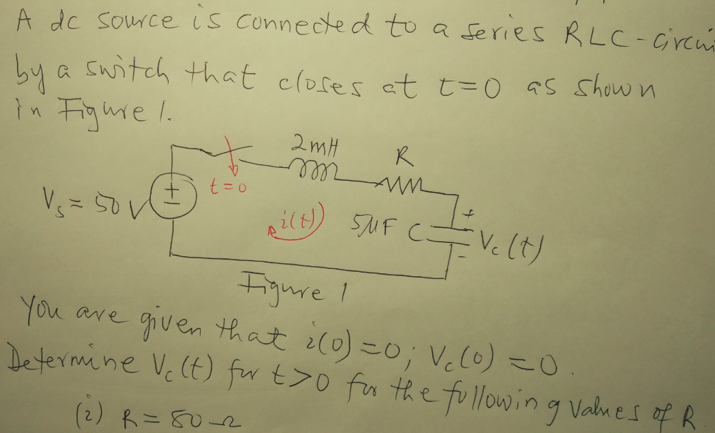 A dc source is connected to a series RLC-circui
by a switch that closes at t=0 as shown
in Figure 1.
2mH
R
t=0
Vs = 50 V
i(t)
5μF C
+
Vc(t)
-
Figure 1
You are given that i(0)=0; Vc(0)=0.
Determine Vc(t) for t>0 for the following values of R
(i) R = 80 Ω